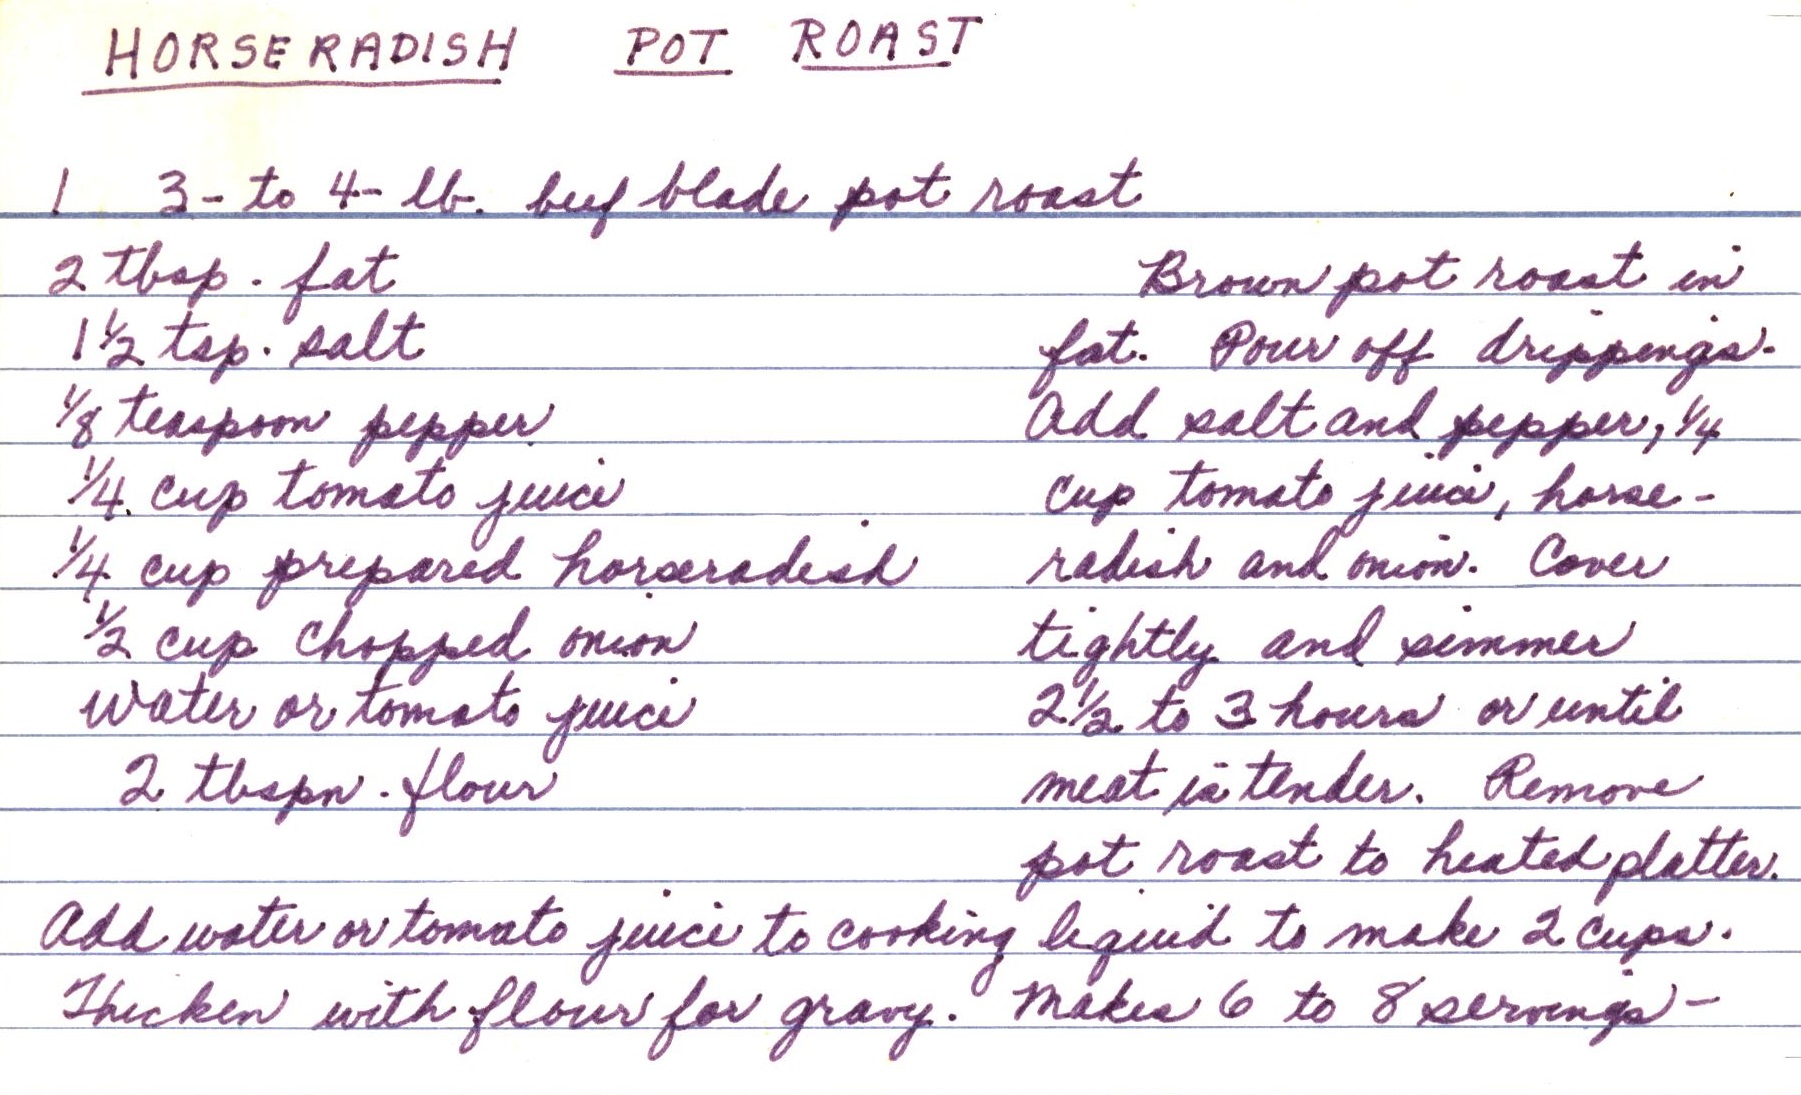 HORSERADISH POT ROAST
1 3- to 4- lb. beef blade pot roast
2 tbsp. fat
1 1/2 tsp. salt
1/8 teaspoon pepper
1/4 cup tomato juice
1/4 cup prepared horseradish
1/2 cup chopped onion
water or tomato juice
2 tbspn. flour
Brown pot roast in
fat. Pour off drippings.
Add salt and pepper, 1/4
cup tomato juice, horse-
radish and onion. Cover
tightly and simmer
2 1/2 to 3 hours or until
meat is tender. Remove
pot roast to heated platter.
Add water or tomato juice to cooking liquid to make 2 cups.
Thicken with flour for gravy. Makes 6 to 8 servings-